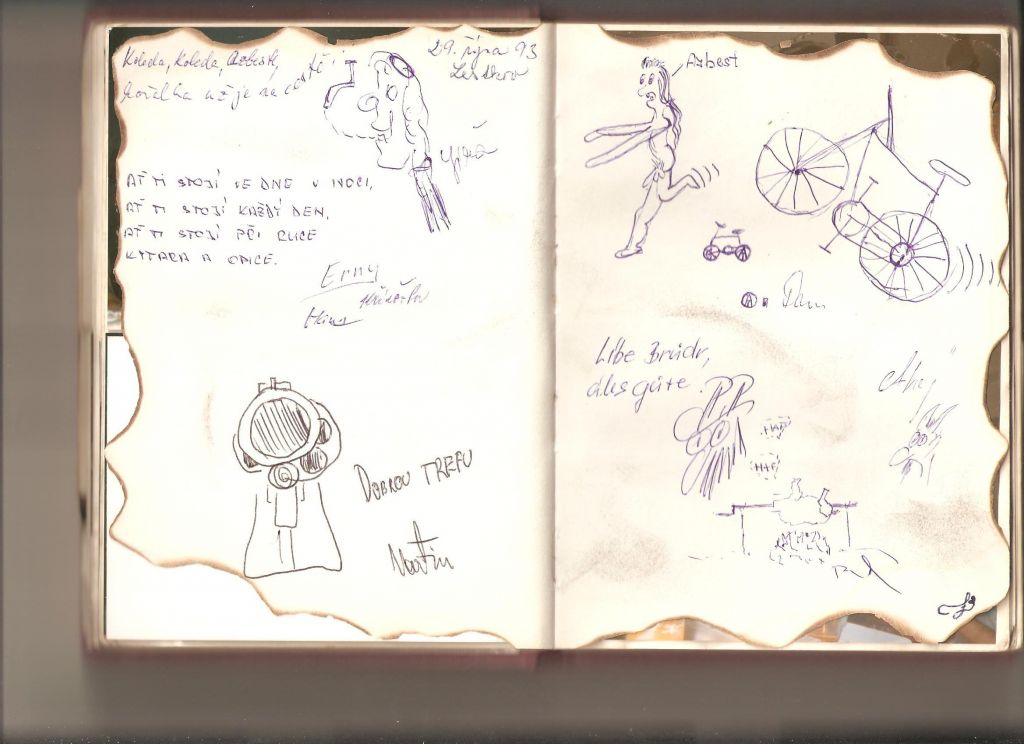 Koleda, Koleda, Azbest,
kořalka už je na cestě!
29. října 93
Leškov
AŤ TI STOJÍ VE DNE V NOCI,
AŤ TI STOJÍ KAŽDÝ DEN,
AŤ TI STOJÍ PŘI RUCE
KYTARA A OPICE.
Erny
DOBROU TREFU
Martin
Azbest
Libe Bruidr,
alles gute.
HAF
HAF
Ahoj